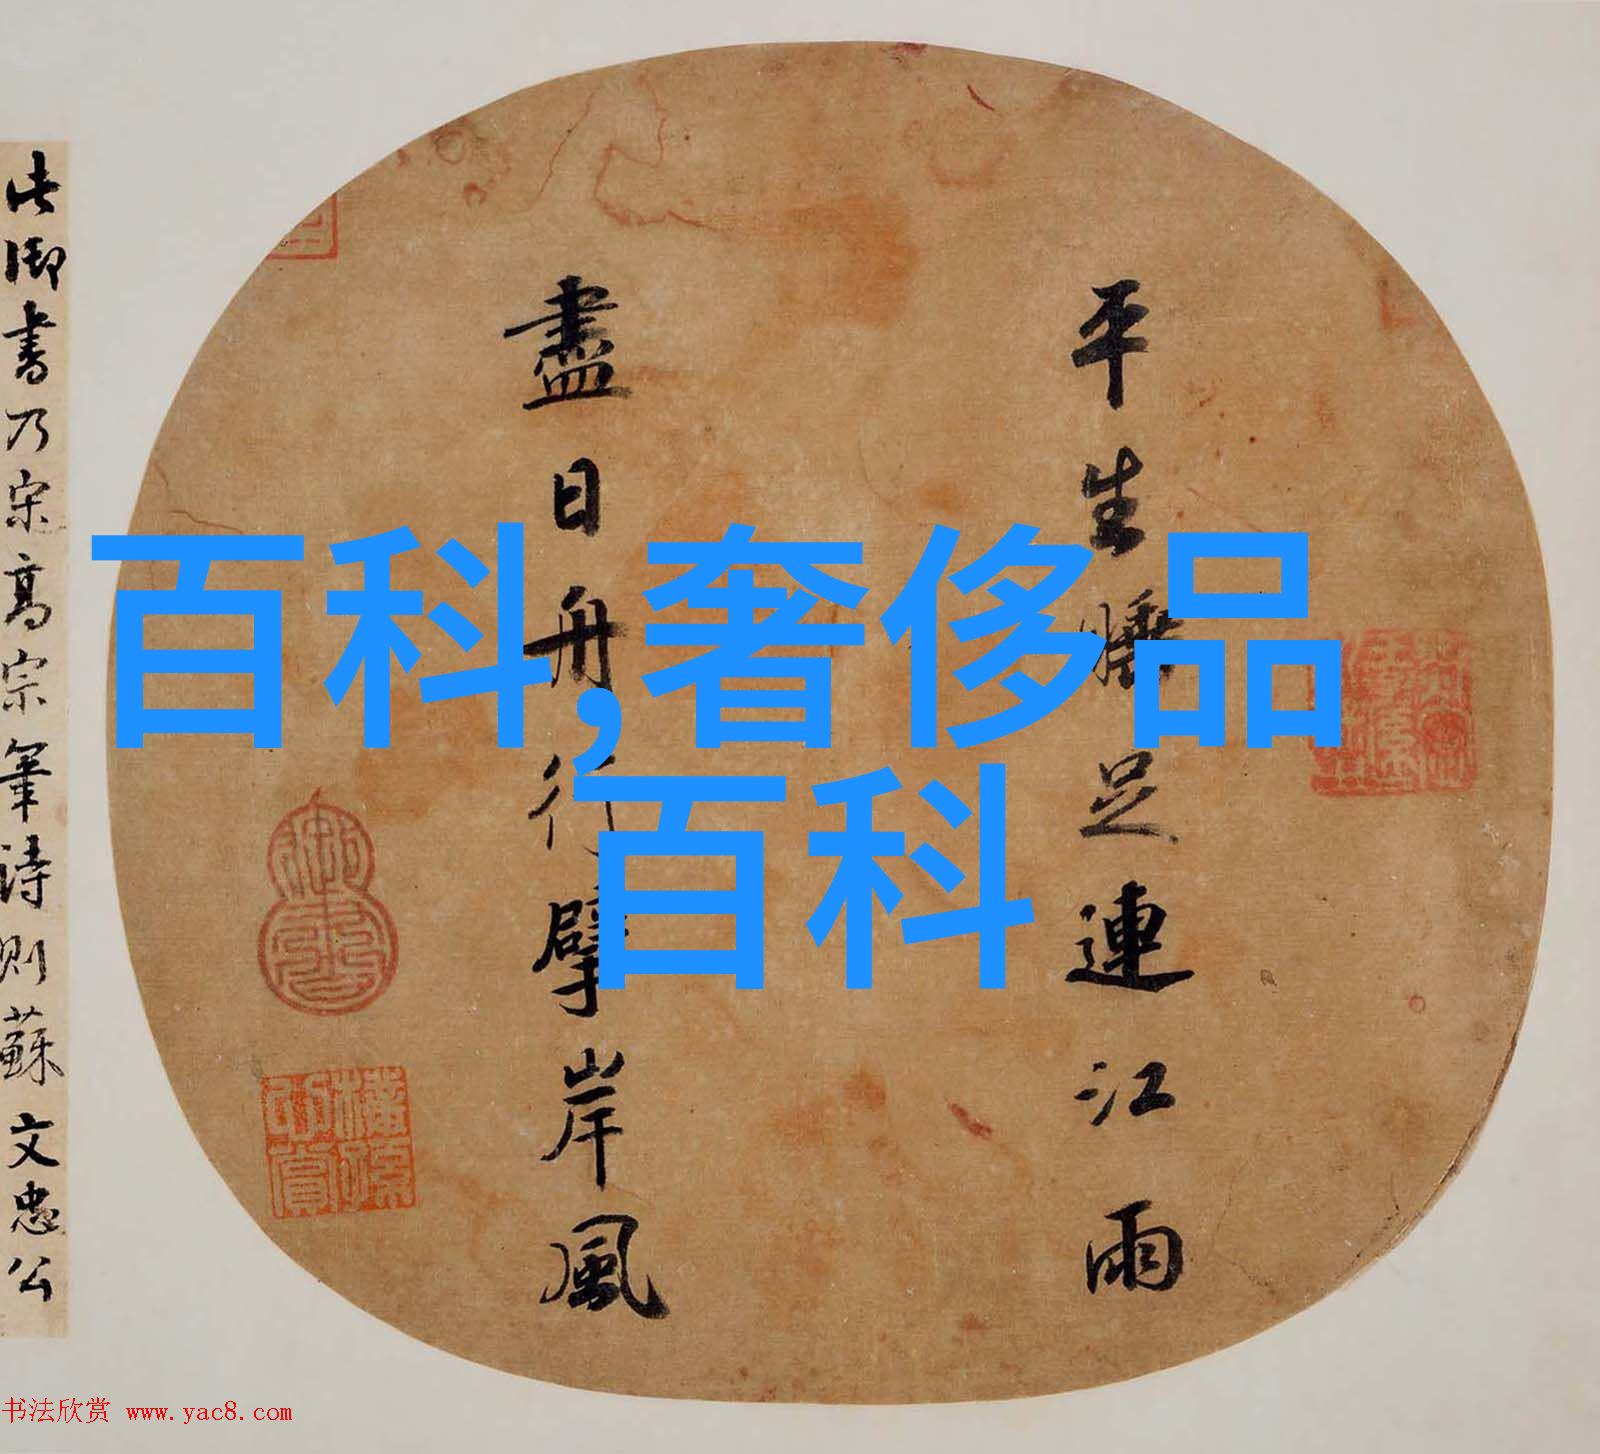 百科,奢侈品
百科
平生睡足連江雨
盡日舟行擘岸風
此御書乃宋高宗筆詩則蘇文忠公
书法欣赏 www.yac8.com